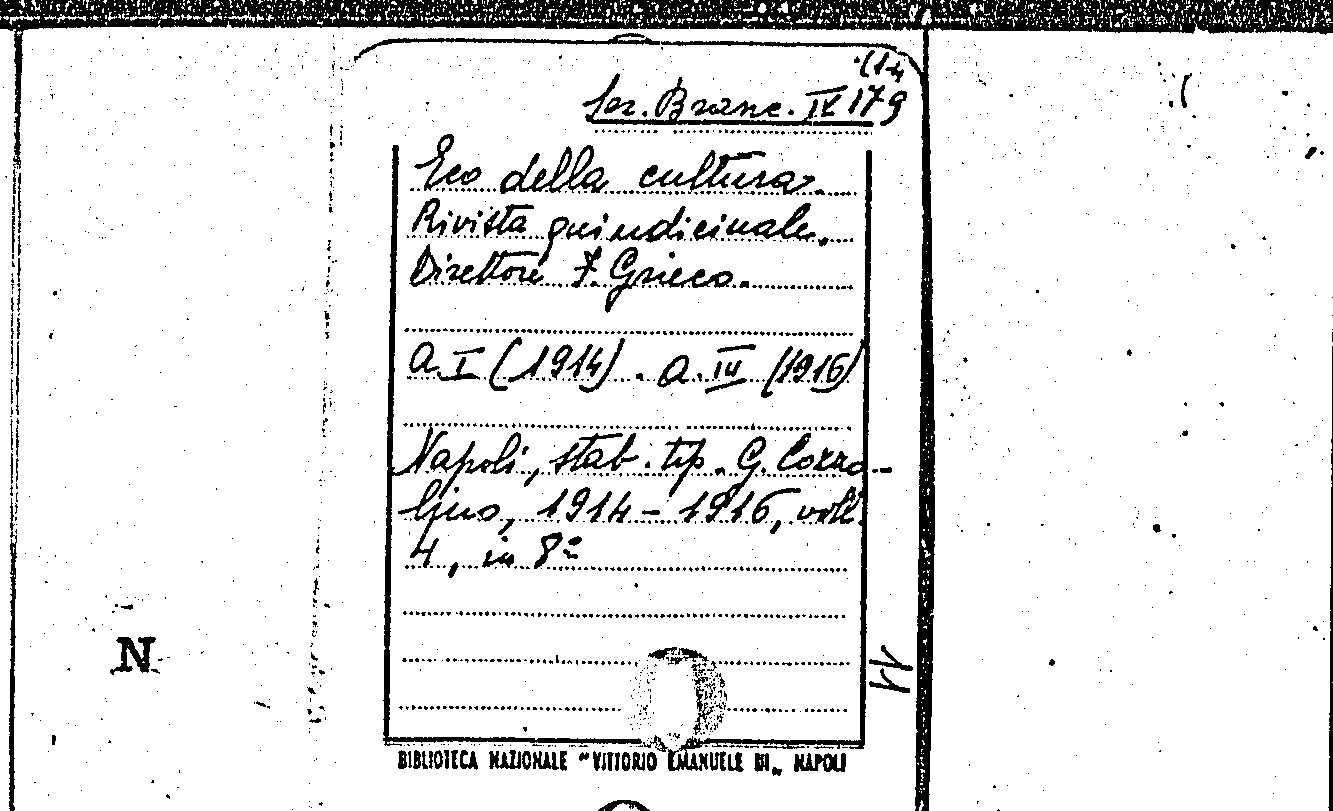 (1-4
Ser. Branc. IX 179
Eco della cultura.
Rivista quindicinale.
Direttore F. Grieco.
a. I (1914) . a. III (1916)
Napoli, stab. tip. G. Cozzo-
lino, 1914-1916, voll.
4, in 8º
N
BIBLIOTECA NAZIONALE "VITTORIO EMANUELE III" NAPOLI